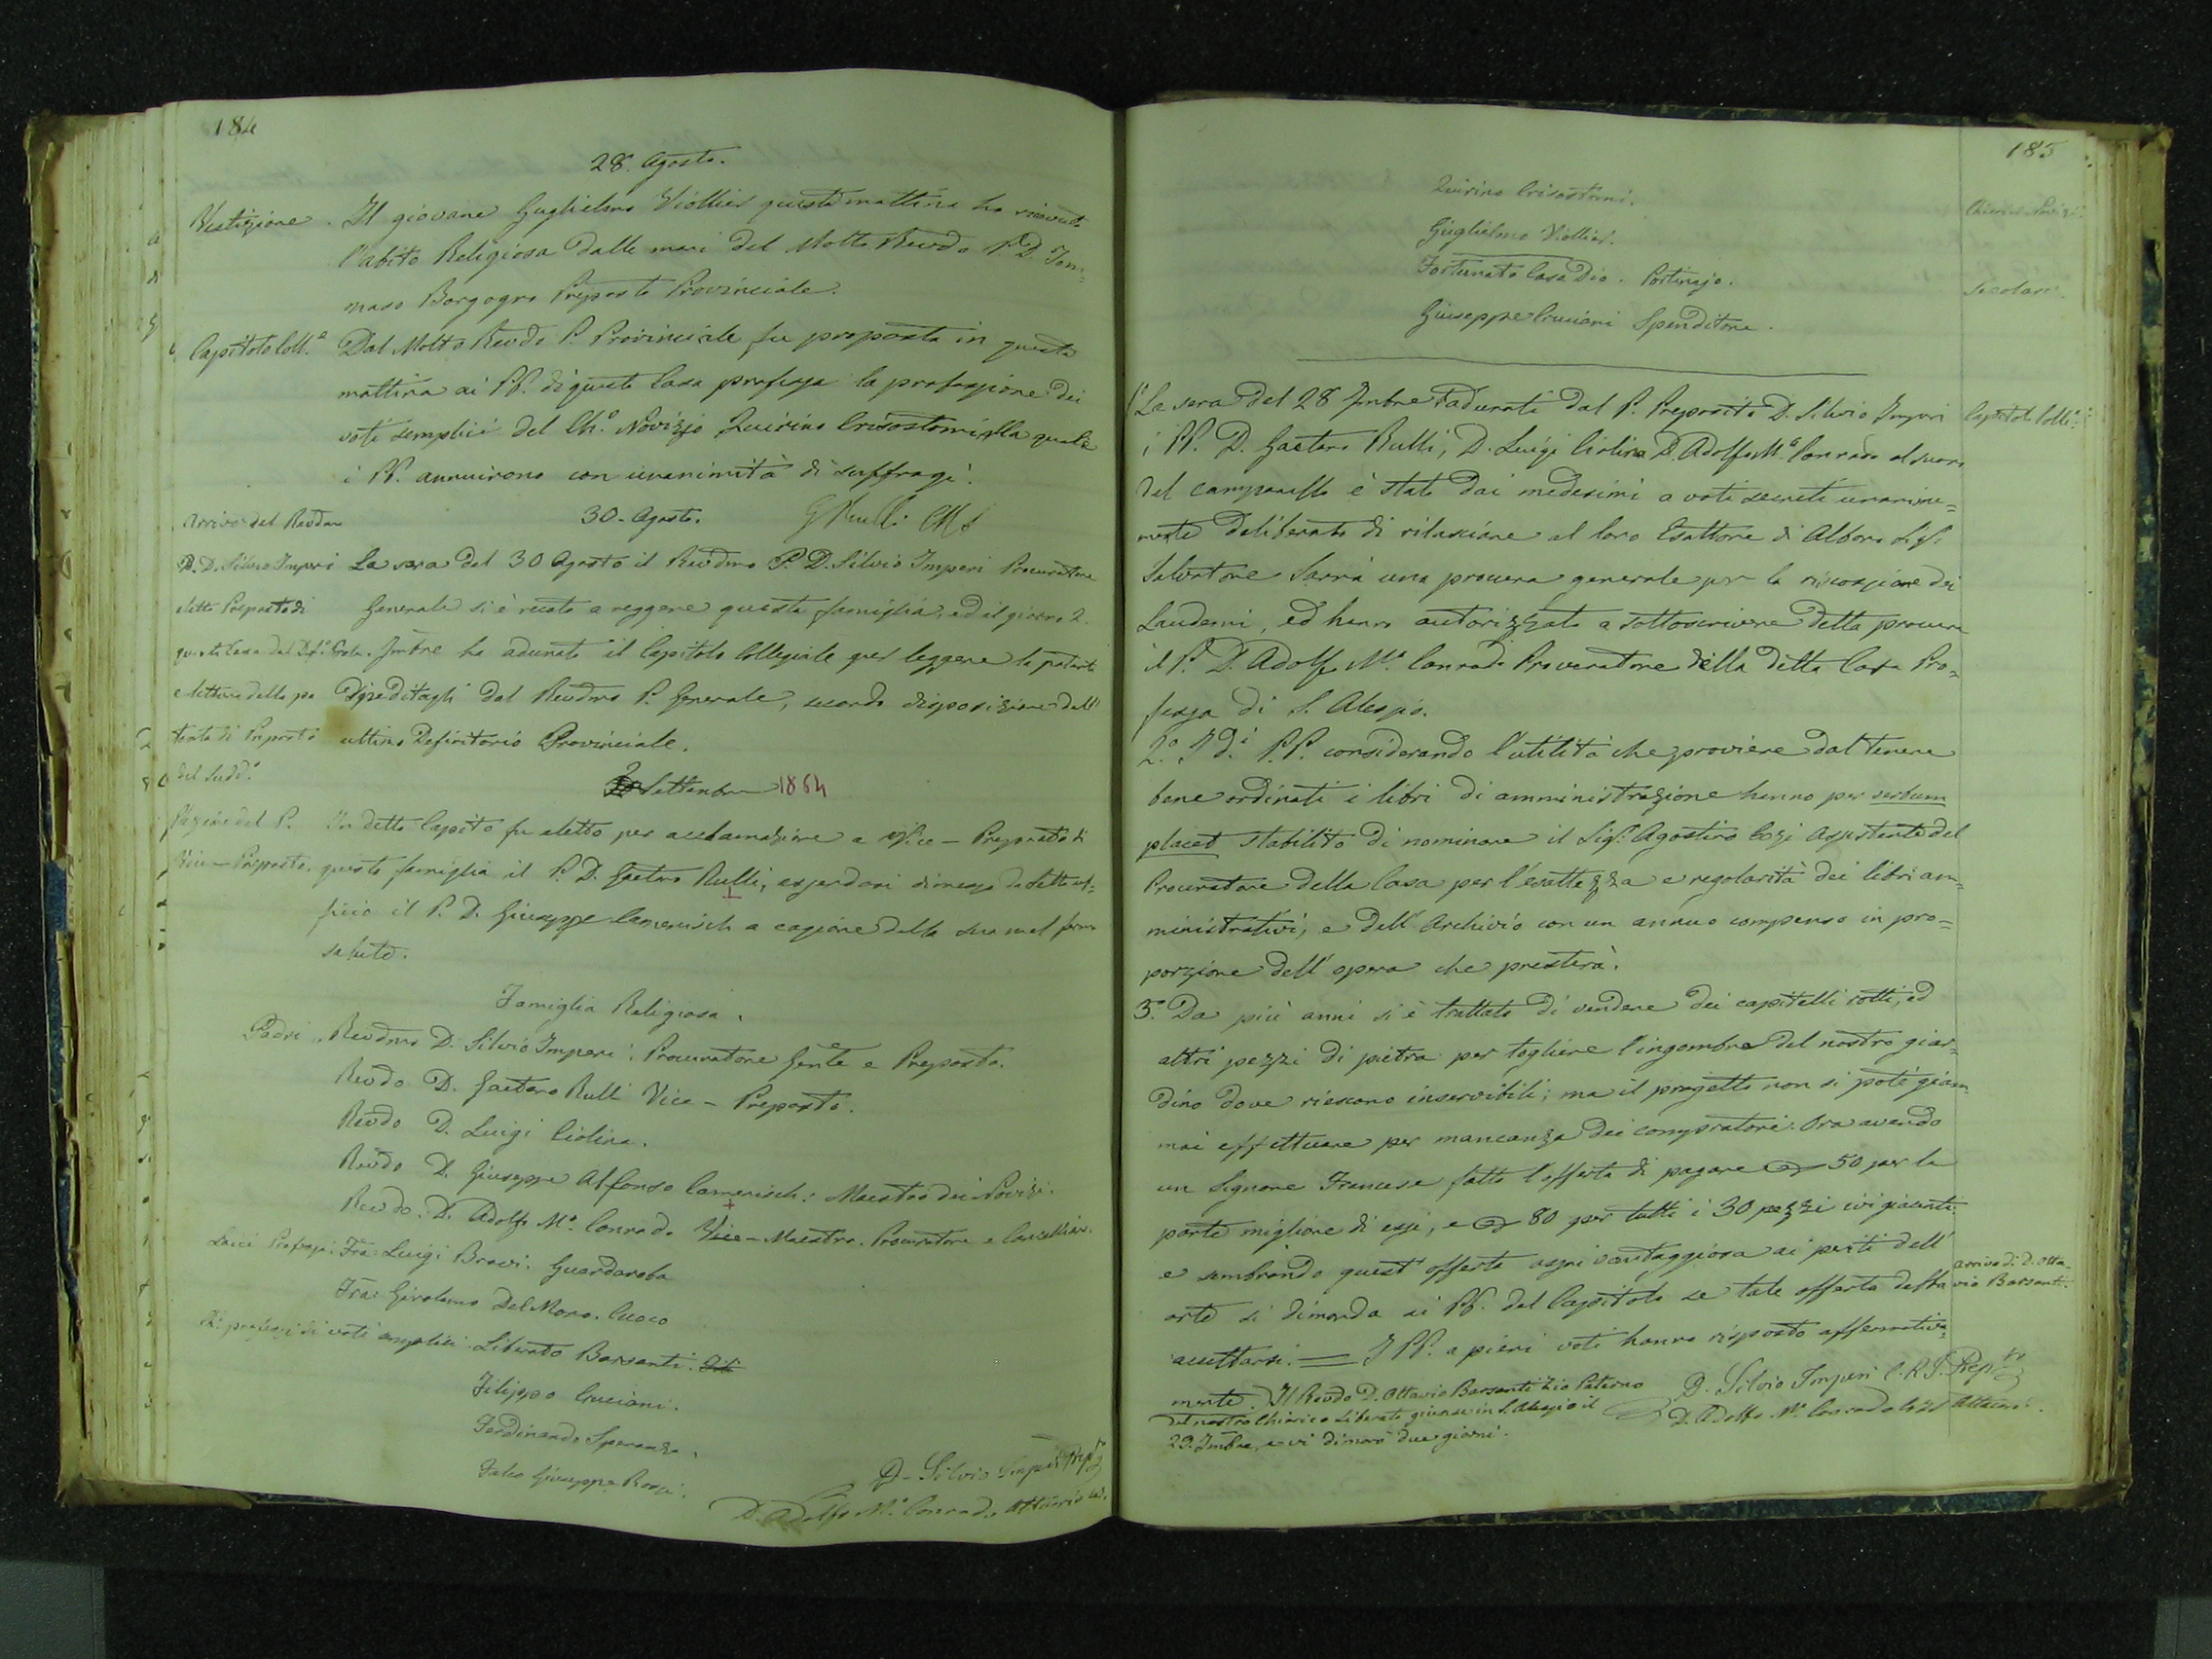 184
28. Agosto.
Vestizione. Il giovane Guglielmo Viollier questa mattina ha ricevuto
l'abito Religioso dalle mani del Molto Revdo P. D. Tom-
maso Borgogno Preposto Provinciale.
Capitolo Coll.e Dal Molto Revdo P. Provinciale fu proposta in questa
mattina ai PP. di questa Casa professa la professione dei
voti semplici del Ch.o Novizio Quirino Crisostomi, alla quale
i PP. annuirono con unanimità di suffragi.
30. Agosto. G Rulli CRS
Arrivo del Revdmo
P. D. Silvio Imperi
eletto Preposto di
questa Casa dal Def.o Prole.
e lettura della pa
tente di Preposto
del Sudd.o
La sera del 30 Agosto il Revdmo P. D. Silvio Imperi Procuratore
Generale si è recato a reggere questa famiglia, ed il giorno 2.
7mbre ha adunato il Capitolo Collegiale per leggere la patente
speditagli dal Revdmo P. Generale, secondo disposizione dell'
ultimo Definitorio Provinciale.
2 Settembre 1864
Elezione del P.
Vice-Preposto.
In detto Capito fu eletto per acclamazione a Vice-Preposto di
questa famiglia il P. D. Gaetano Rulli, essendosi dimesso da detto uf-
ficio il P. D. Giuseppe Camerisch a cagione della sua mal ferma
salute.
Famiglia Religiosa.
Padri. Revdmo D. Silvio Imperi. Procuratore Gente e Preposto.
Revdo D. Gaetano Rulli Vice-Preposto.
Revdo D. Luigi Ciolina.
Revdo D. Giuseppe Alfonso Camerisch: Maestro dei Novizi.
Revdo. D. Adolfo M.a Conrado Vice-Maestro. Procuratore e Cancelliere.
Laici Professi. Fra: Luigi Bravi. Guardaroba
Fra: Girolamo Del Moro. Cuoco
Ch: professi di voti semplici. Liberato Barsanti.
Filippo Cruciani.
Ferdinando Speranza.
Giuseppe Rossi.
D. Silvio Imperi Prep.to
D. Adolfo M.a Conrado Attuario
185
Quirino Crisostomi. Chierici Novizi.
Guglielmo Viollier.
Fortunato Casa Dio. Portinajo. Secolari.
Giuseppe Cruciani Spenditore.
1.o La sera del 28 7mbre radunati dal P. Preposito D. Silvio Imperi Capitolo Colle:
i PP. D. Gaetano Rulli, D. Luigi Ciolina D. Adolfo M.a Conrado al suono
del campanello è stato dai medesimi a voti secreti unanime-
mente deliberato di rilasciare al loro Esattore di Albano Sig.
Salvatore Sannà una procura generale per la riscossione dei
Laudemi, ed hanno autorizzato a sottoscrivere detta procura
il P. D. Adolfo M.a Conrado Procuratore della detta Casa Pro-
fessa di S. Alessio.
2.o I d.i P.P. considerando l'utilità che proviene dal tenere
bene ordinati i libri di amministrazione hanno per verbum
placet stabilito di nominare il Sig.r Agostino Cozi Assistente del
Procuratore della Casa per l'esattezza e regolarità dei libri am-
ministrativi, e dell'Archivio con un annuo compenso in pro-
porzione dell'opera che presterà.
3.o Da più anni si è trattato di vendere dei capitelli rotti, ed
altri pezzi di pietra per togliere l'ingombro del nostro giar-
dino dove riescono inservibili; ma il progetto non si potè giam-
mai effettuare per mancanza dei compratori. Ora avendo
un Signore Francese fatto l'offerta di pagare 50 per la
parte migliore di essi, e 80 per tutti i 30 pezzi ivi giacenti.
e sembrando quest'offerta assai vantaggiosa ai periti dell'
arte si dimanda ai PP. del Capitolo se tale offerta debba
accettarsi. = I PP. a pieni voti hanno risposto affermativa-
mente. Il Revdo D. Ottavio Barsanti Zio Paterno
del nostro Chierico Liberato giunse in S. Alessio il
29. 7mbre, e vi dimorò due giorni.
Arrivo di D. Otta-
vio Barsanti.
D. Silvio Imperi C.R.S. Prep.to
D. Adolfo M.a Conrado CRS Attuario.